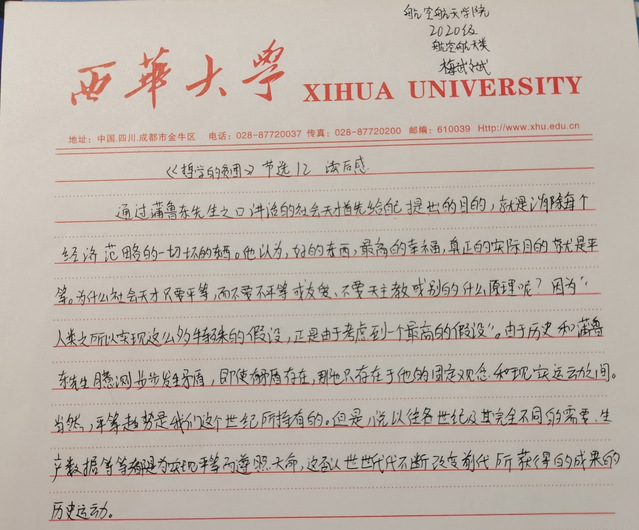 航空航天学院
2020级
航空航天类
梅
西華大學 XIHUA UNIVERSITY
地址：中国.四川.成都市金牛区 电话：028-87720037 传真：028-87720200 邮编：610039 Http://www.xhu.edu.cn
《哲学的贫困》节选12 读后感
通过蒲鲁东先生之口讲话的社会天才首先给自己提出的目的，就是消除每个
经济范畴的一切坏的东西。他认为，好的东西，最高的幸福，真正的实际目的就是平
等。为什么社会天才只要平等，而不要不平等或友爱、不要天主教或别的什么原理呢？因为“
人类之所以实现这么多特殊的假设，正是由于考虑到一个最高的假设”。由于历史和蒲鲁
东先生臆测步步发生矛盾，即使有矛盾存在，那也只存在于他的固定观念和现实运动之间。
当然，平等趋势是我们这个世纪所特有的。但是，说以往各世纪及其完全不同的需要、生
产数据等等都是为实现平等而遵照天命，这否认世世代代不断改变前代所获得的成果的
历史运动。